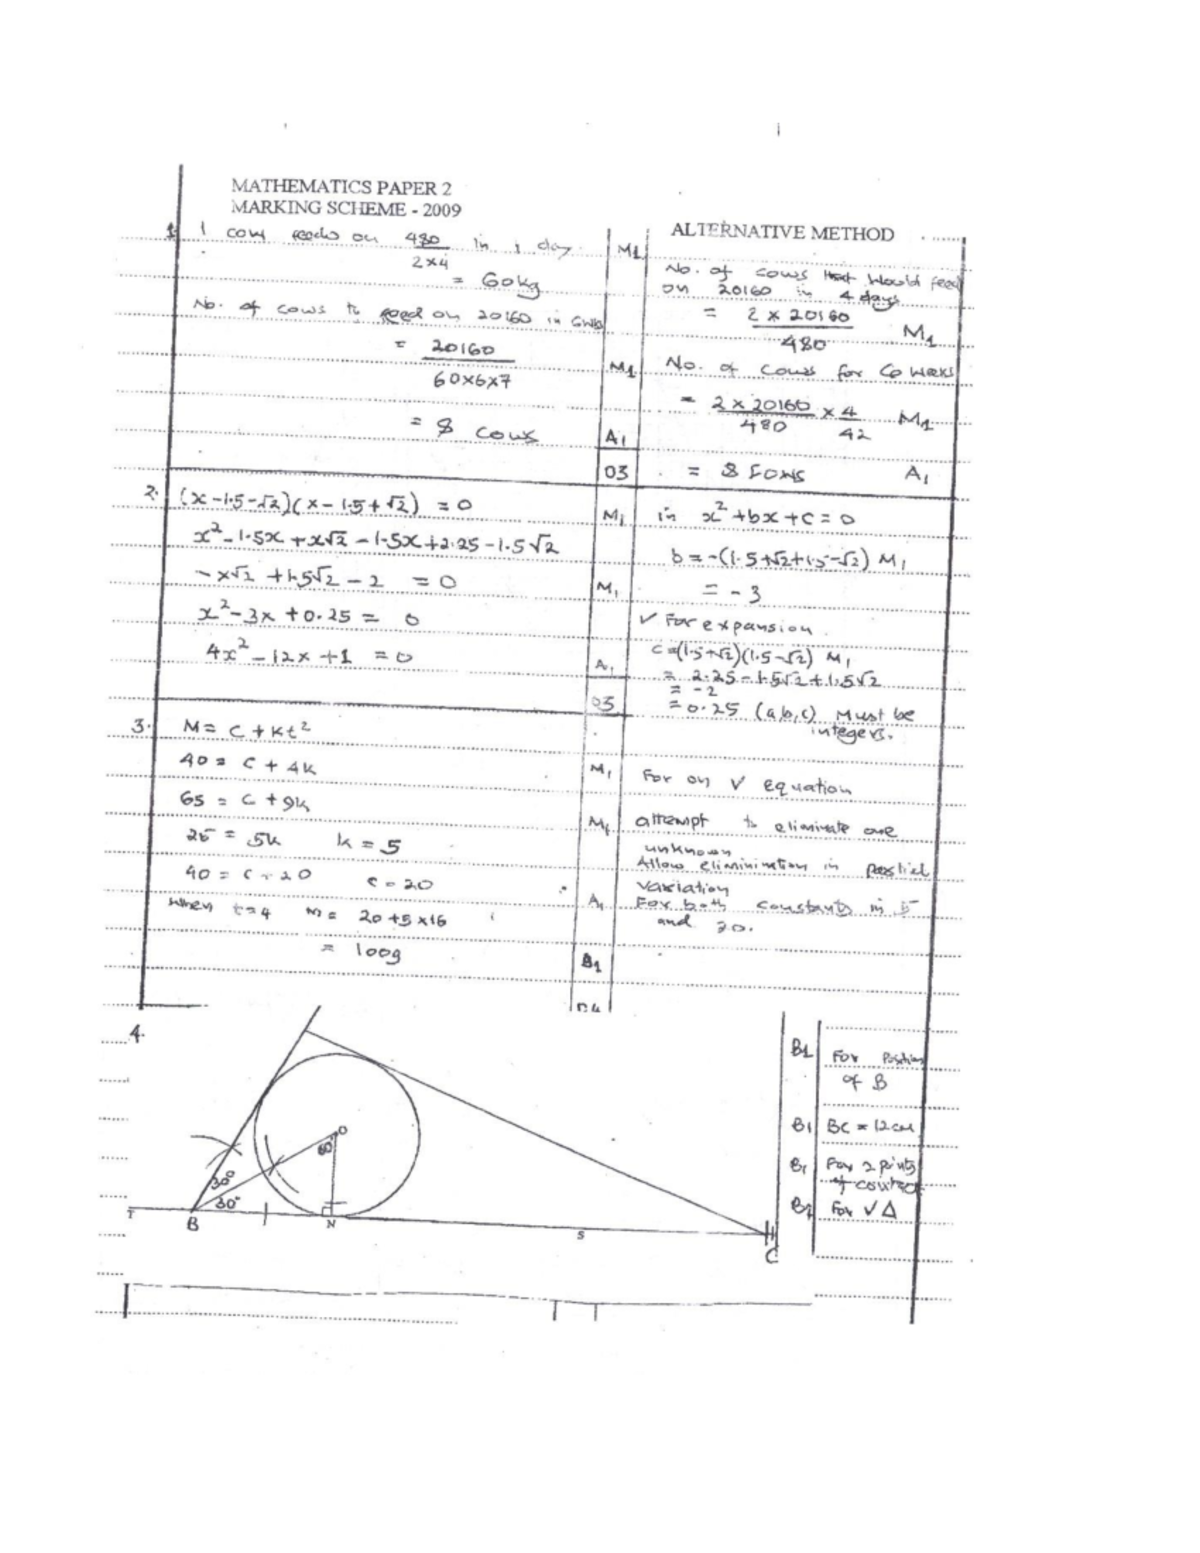 MATHEMATICS PAPER 2
MARKING SCHEME - 2009
ALTERNATIVE METHOD
1. 1 cow feeds on 480/(2×4) in 1 day. M1
= 60kg
No. of cows to feed on 20160 in 6wks
= 20160/(60×6×7) M1
= 8 cows A1
03
No. of cows that would feed
on 20160 in 4 days
= (2 × 20160)/480 M1
No. of cows for 6 weeks
= (2 × 20160)/480 × 4/42 M1
= 8 cows A1
2. (x-1.5-√2)(x-1.5+√2) = 0 M1
x²-1.5x+x√2-1.5x+2.25-1.5√2
-x√2+1.5√2-2 = 0 M1
x²-3x+0.25 = 0
4x²-12x+1 = 0 A1
03
in x²+bx+c=0
b=-(1.5+√2+1.5-√2) M1
= -3
√ For expansion.
c=(1.5+√2)(1.5-√2) M1
= 2.25-1.5√2+1.5√2
= -2
=0.25 (a,b,c) Must be
integers.
3. M= C+Kt²
40= C+4K M1
65 = C+9k
25 = 5k k=5 M1
40=C-20 c-20 A1
When t=4 M= 20+5×16
= 100g B1
04
For on √ equation
attempt to eliminate one
unknown
Allow eliminination in partial
variation
For both constants in 5
and 20.
4.
O
60°
30°
30°
T
B
N
S
C
B1 For Position
of B
B1 BC = 12cm
B1 For 2 points
of contact
B1 For √ Δ